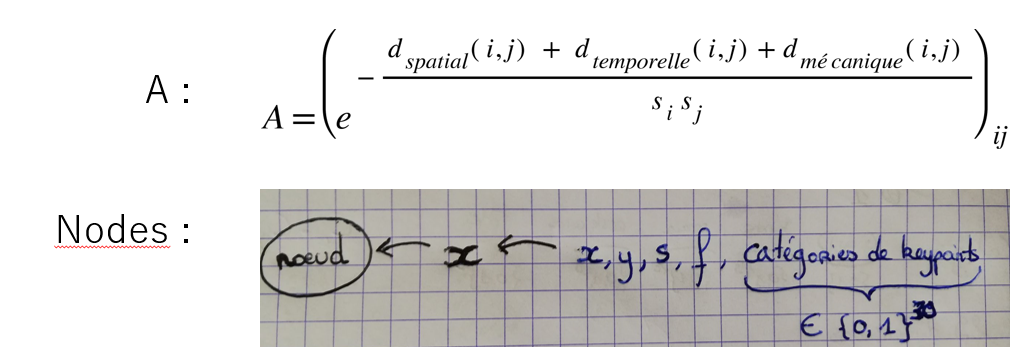 A :
A = ( e^{- \frac{d_{spatial}(i,j) + d_{temporelle}(i,j) + d_{mécanique}(i,j)}{s_i s_j}} )_{ij}
Nodes :
nœud ← x ← x, y, s, f, catégories de keypoints
∈ {0,1}